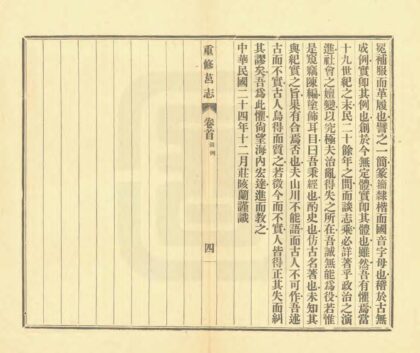 冕補服而革履也譬之一簡篆籀隸楷而國音字母也稽於古無
成例實即其例也創於今無定體實即其體也雖然吾有懼焉當
十九世紀之末民二十餘年之間而談志乘必詳著乎政治之演
進社會之嬗變以究極夫治亂得失之所在吾誠無能為役若惟
是窺竊陳編塗飾耳目曰吾秉經也酌史也仿古名著也未知其
與紀實之旨果有合焉否也夫山川不能語而古人不可作吾述
古而不實古人烏得而質之若徵今而不實人皆得正其失而糾
其謬矣吾為此懼尚望海內宏達進而教之
中華民國二十四年十二月莊陔蘭謹識
重修莒志
卷首
四